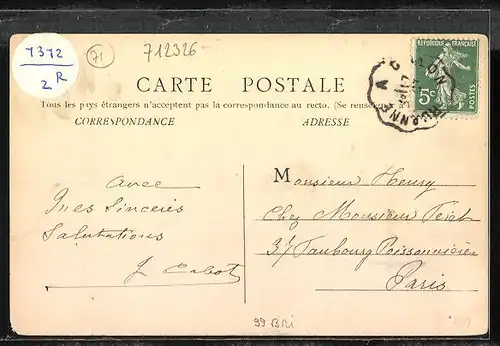 7372
2R
71
712326
CARTE POSTALE
Tous les pays étrangers n'acceptent pas la correspondance au recto. (Se renseigner
CORRESPONDANCE
ADRESSE
RÉPUBLIQUE FRANÇAISE
5c
POSTES
Avec
mes Sincères
Salutations
Monsieur Henry
Chez Monsieur
37 Faubourg Poissonnière
Paris
99 BRi